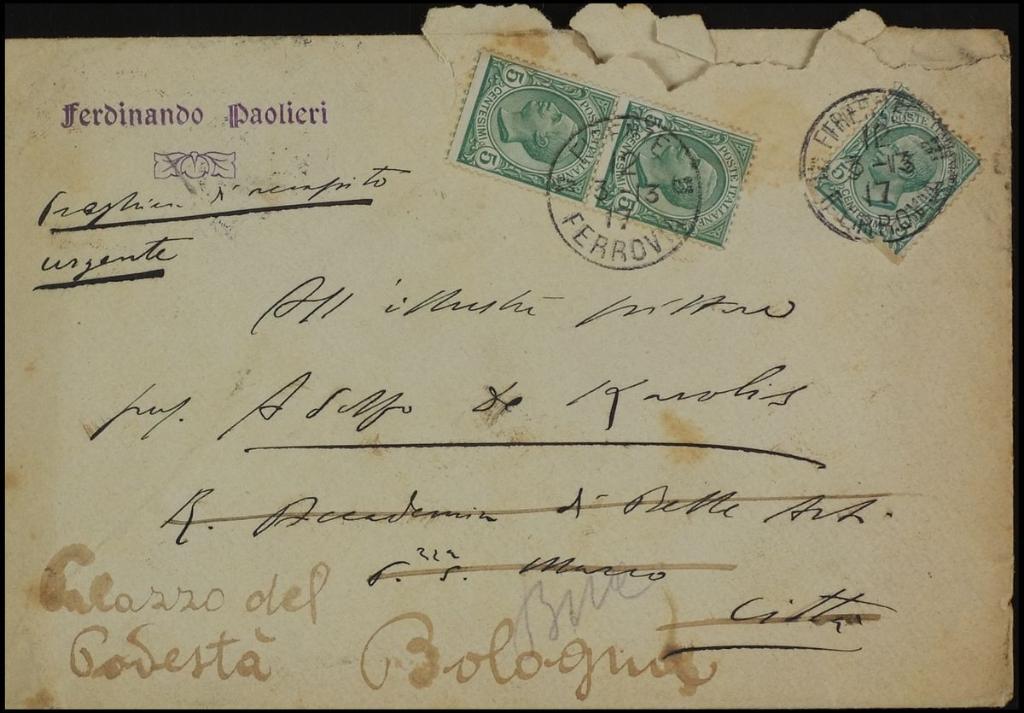 Ferdinando Paolieri
Preghiera di recapito
urgente
All'illustre pittore
prof. Adolfo de Karolis
R. Accademia di Belle Arti
P.zza S. Marco
Città
Palazzo del
Podestà
Bologna
5 CENTESIMI 5
POSTE ITALIANE
POSTE ITALIANE
FIRENZE
13
17
FERROVIA
FIRENZE
13
17
FERROVIA